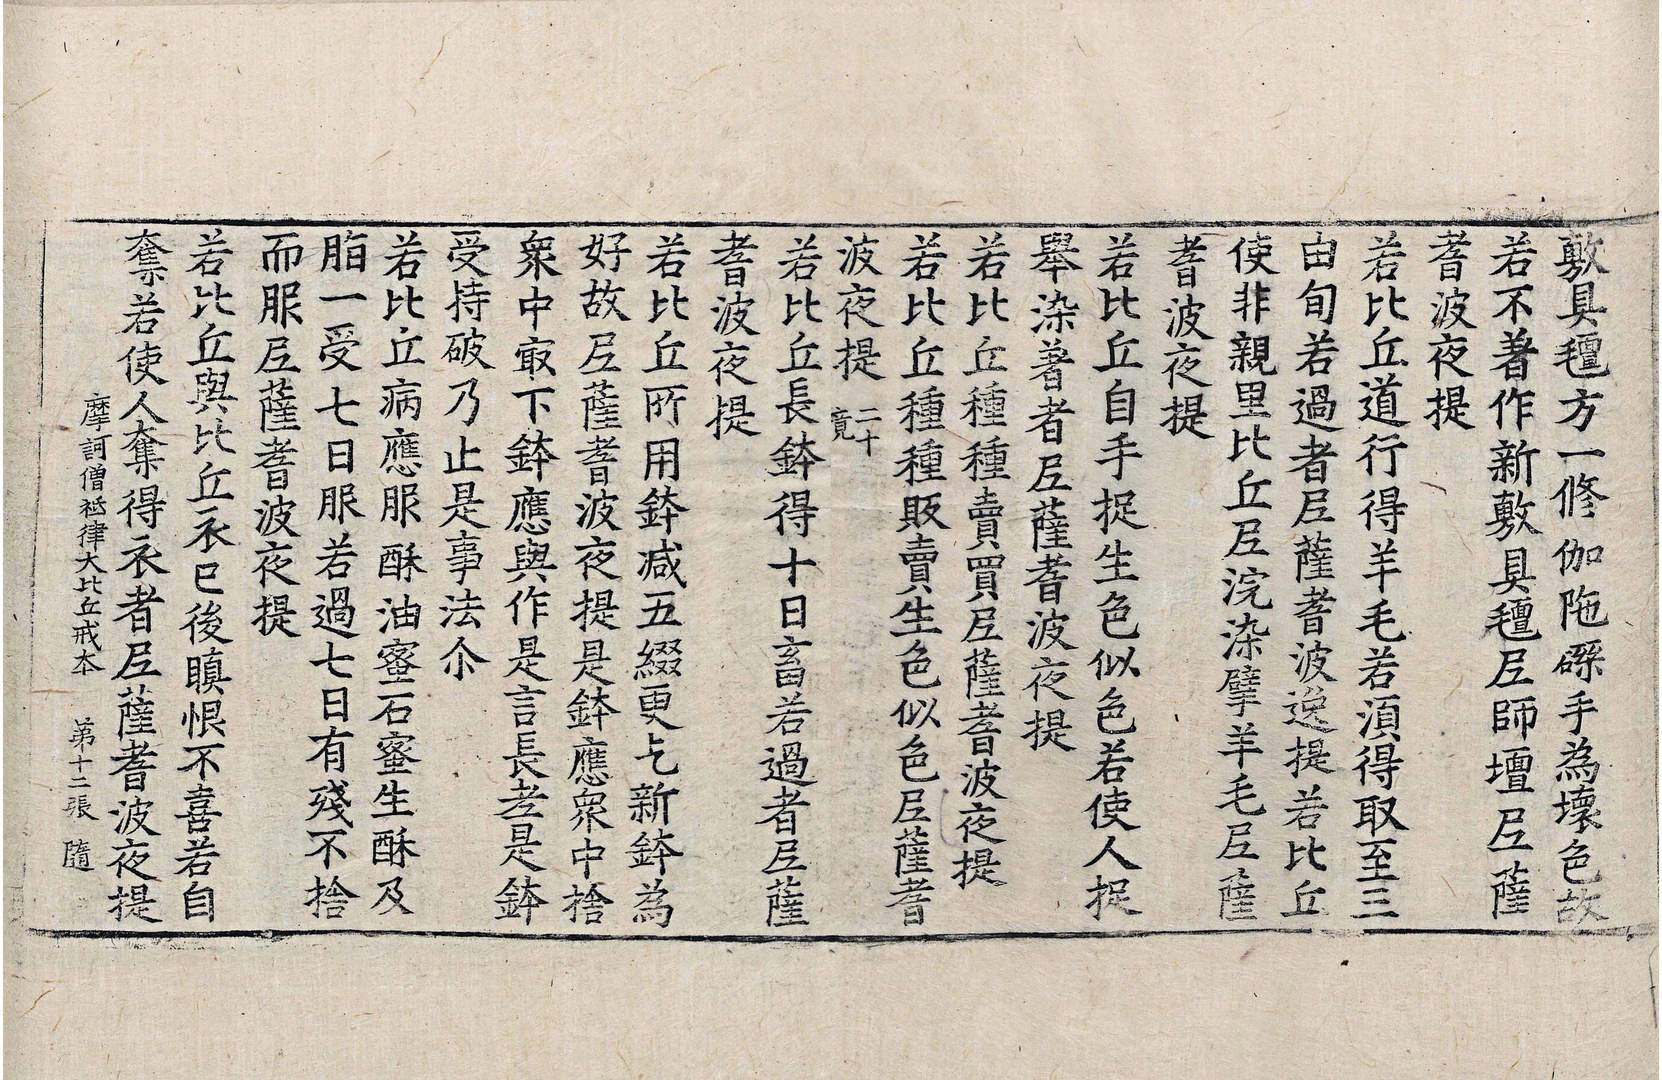 敷具氈方一修伽陁磔手為壞色故
若不著作新敷具氈尼師壇尼薩
耆波夜提
若比丘道行得羊毛若湏得取至三
由旬若過者尼薩耆波逸提若比丘
使非親里比丘尼浣染擘羊毛尼薩
耆波夜提
若比丘自手捉生色似色若使人捉
舉染著者尼薩耆波夜提
若比丘種種賣買尼薩耆波夜提
若比丘種種販賣生色似色尼薩耆
波夜提 二十竟
若比丘長鉢得十日畜若過者尼薩
耆波夜提
若比丘所用鉢減五綴更乞新鉢為
好故尼薩耆波夜提是鉢應衆中捨
衆中㝡下鉢應與作是言長老是鉢
受持破乃止是事法尒
若比丘病應服酥油蜜石蜜生酥及
脂一受七日服若過七日有殘不捨
而服尼薩耆波夜提
若比丘與比丘衣已後瞋恨不喜若自
奪若使人奪得衣者尼薩耆波夜提
摩訶僧祇律大比丘戒本 第十二張 隨